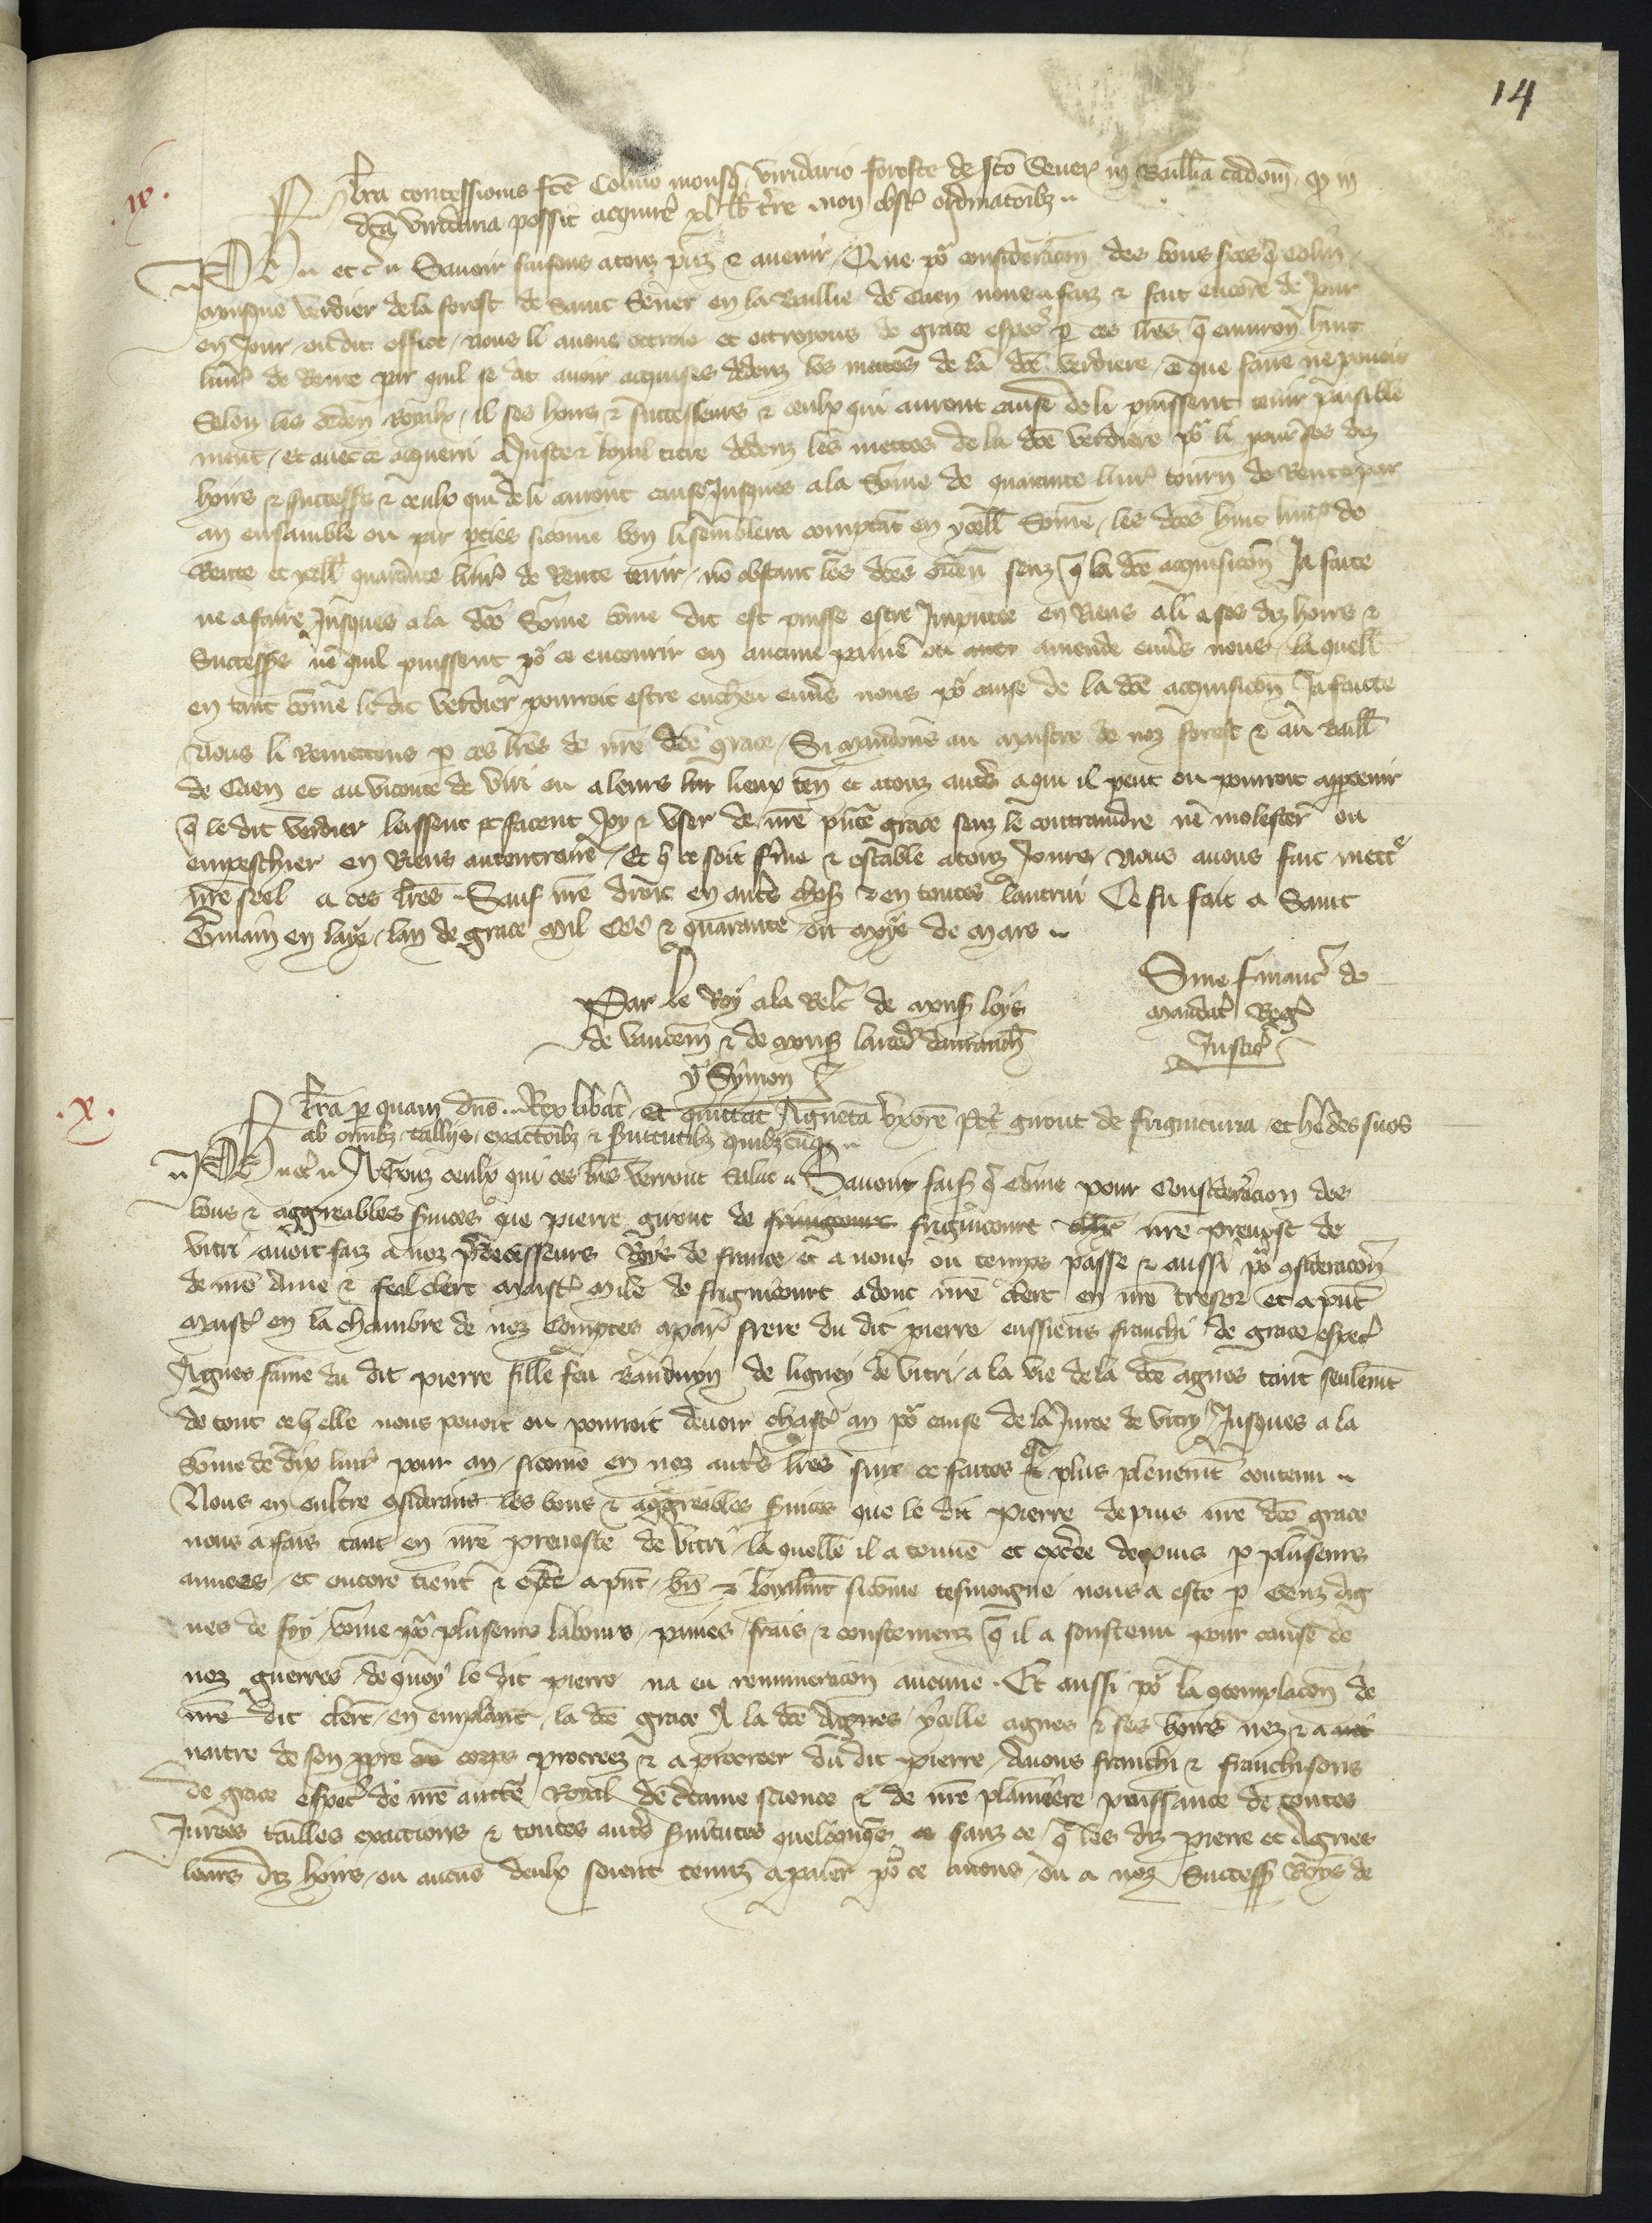 14
.ix.
Lra concessionis fce Colino monsq viridario foreste de sco Sever in Baillia Cadom q in
dca virideria possit acquire xl lb tre non obst ordinacoibz
Ph etc Savoir faisons a touz pns & avenir Que por consideracion des bons svices q Colin
monsque verdier de la forest de Saint Sever en la Baillie de Caen nous a faiz & fait encore de jour
en jour ou dit office nous li avons ottroie et ottroyons de grace especl p ces lres q environ huit
livr de Rente par quil se dit avoir acquises dedenz les mettes de la dce verdiere ce que faire ne pouoit
Selon les orden Royaulx il ses hoirs & successeurs & ceulx qui auront cause de li puissent tenir paisible
ment et avec ce acquerir a juste & loyal titre dedenz les mettes de la dce verdiere por li pour ses diz
hoirs & success & ceulx qui de li auront cause jusques a la Some de quarante livr tourn de Rente par
an ensamble ou par pcies sicome bon li semblera comptat en ycell Some les dces huit livr de
Rente et ycell quarante livr de Rente tenir no obstant les dces orden senz q la dce acquisicon ja faite
ne a faire jusques a la dce Some come dit est puisse estre jmputee en Riens a li a ses diz hoirs &
Success ne quil puissent por ce encourir en aucune paine ou amende envs nous la quell
en tant come le dit verdier pourroit estre encheu envs nous por cause de la dce acquisicon ja faicte
Nous li Remettons p ces lres de nre dce grace Si mandons au maistre de noz forest & au Baill
de Caen et au viconte de Viri ou a leurs lieux ten et a touz auts a qui il peut ou pourroit apptenir
q le dit verdier laissent et facent joy & user de nre pnte grace senz le contraindre ne molester ou
empeschier en Riens au contraire Et q ce soit ferme & estable a touz jours Nous avons fait mettr
nre seel a ces lres Sauf nre droit en auts choss & en toutes lautrui Ce fu fait a Saint
Gmain en laye lan de grace Mil CCC & quarante ou moys de Mars
Par le Roy a la Relc de mons loys
de Vaucem & de mons
Y Symon
Sine financ de
mandat Reg
Justic
.x.
Lra p quam dns Rex libat et quittat Agneta uxore Petr girout de frignicuria et hedes suos
ab omibz tallijs exactoibz & svitutibz quibzcuq
Ph etc A Touz ceulx qui ces lres verront salut Savoir faiss q Come pour Consideracion des
bons & aggreables svices que pierre girout de frignicourt nre prevost de
vitri avoit faiz a noz predecesseurs Roys de france et a nous ou temps passe & aussi por 9sideracon
de nre Ame & feal clerc Maistr Mile de frignicourt adonc nre clerc en nre tresor et a pnt
Maistr en la chambre de noz Comptes a par frere du dit pierre eussiens franchi de grace especl
Agnes fame du dit pierre fille feu Bauduyn de ligney de vitri a la vie de la dce agnes tant seulemt
de tout ce q elle nous pouoit ou pourroit devoir chastr an por cause de la Juree de vitry Jusques a la
Some de dix livr pour an sicome en noz auts lres sur ce faites est plus plenemt contenu
Nous en oultre 9siderans les bons & aggreables svices que le dit Pierre depuis nre dce grace
nous a fais tant en nre prevoste de vitri la quelle il a tenue et exce depuis p pluseurs
annees et encore tient & exce a pnt bn & loyalmt sicome tesmoigne nous a este p Genz dig
nes de foy come por pluseurs labours paines frais & coustemenz q il a soustenu pour cause de
noz guerres de quoy le dit pierre na eu remuneracon aucune Et aussi por la 9templacon de
nre dit clerc en empliant la dce grace A la dce Agnes ycelle agnes & ses hoirs nez & a
naitre de son ppre corps procreez & a procreer du dit pierre Avons franchi & franchisons
de grace especl de nre auctte Royal de ctaine science & de nre plainiere puissance de toutes
Jurees tailles exactions & toutes auts svitutes quelconqs sanz ce q les diz pierre et Agnes
leurs diz hoirs ou aucus deulx soient tenuz a paier por ce a nous ou a noz Success Roys de